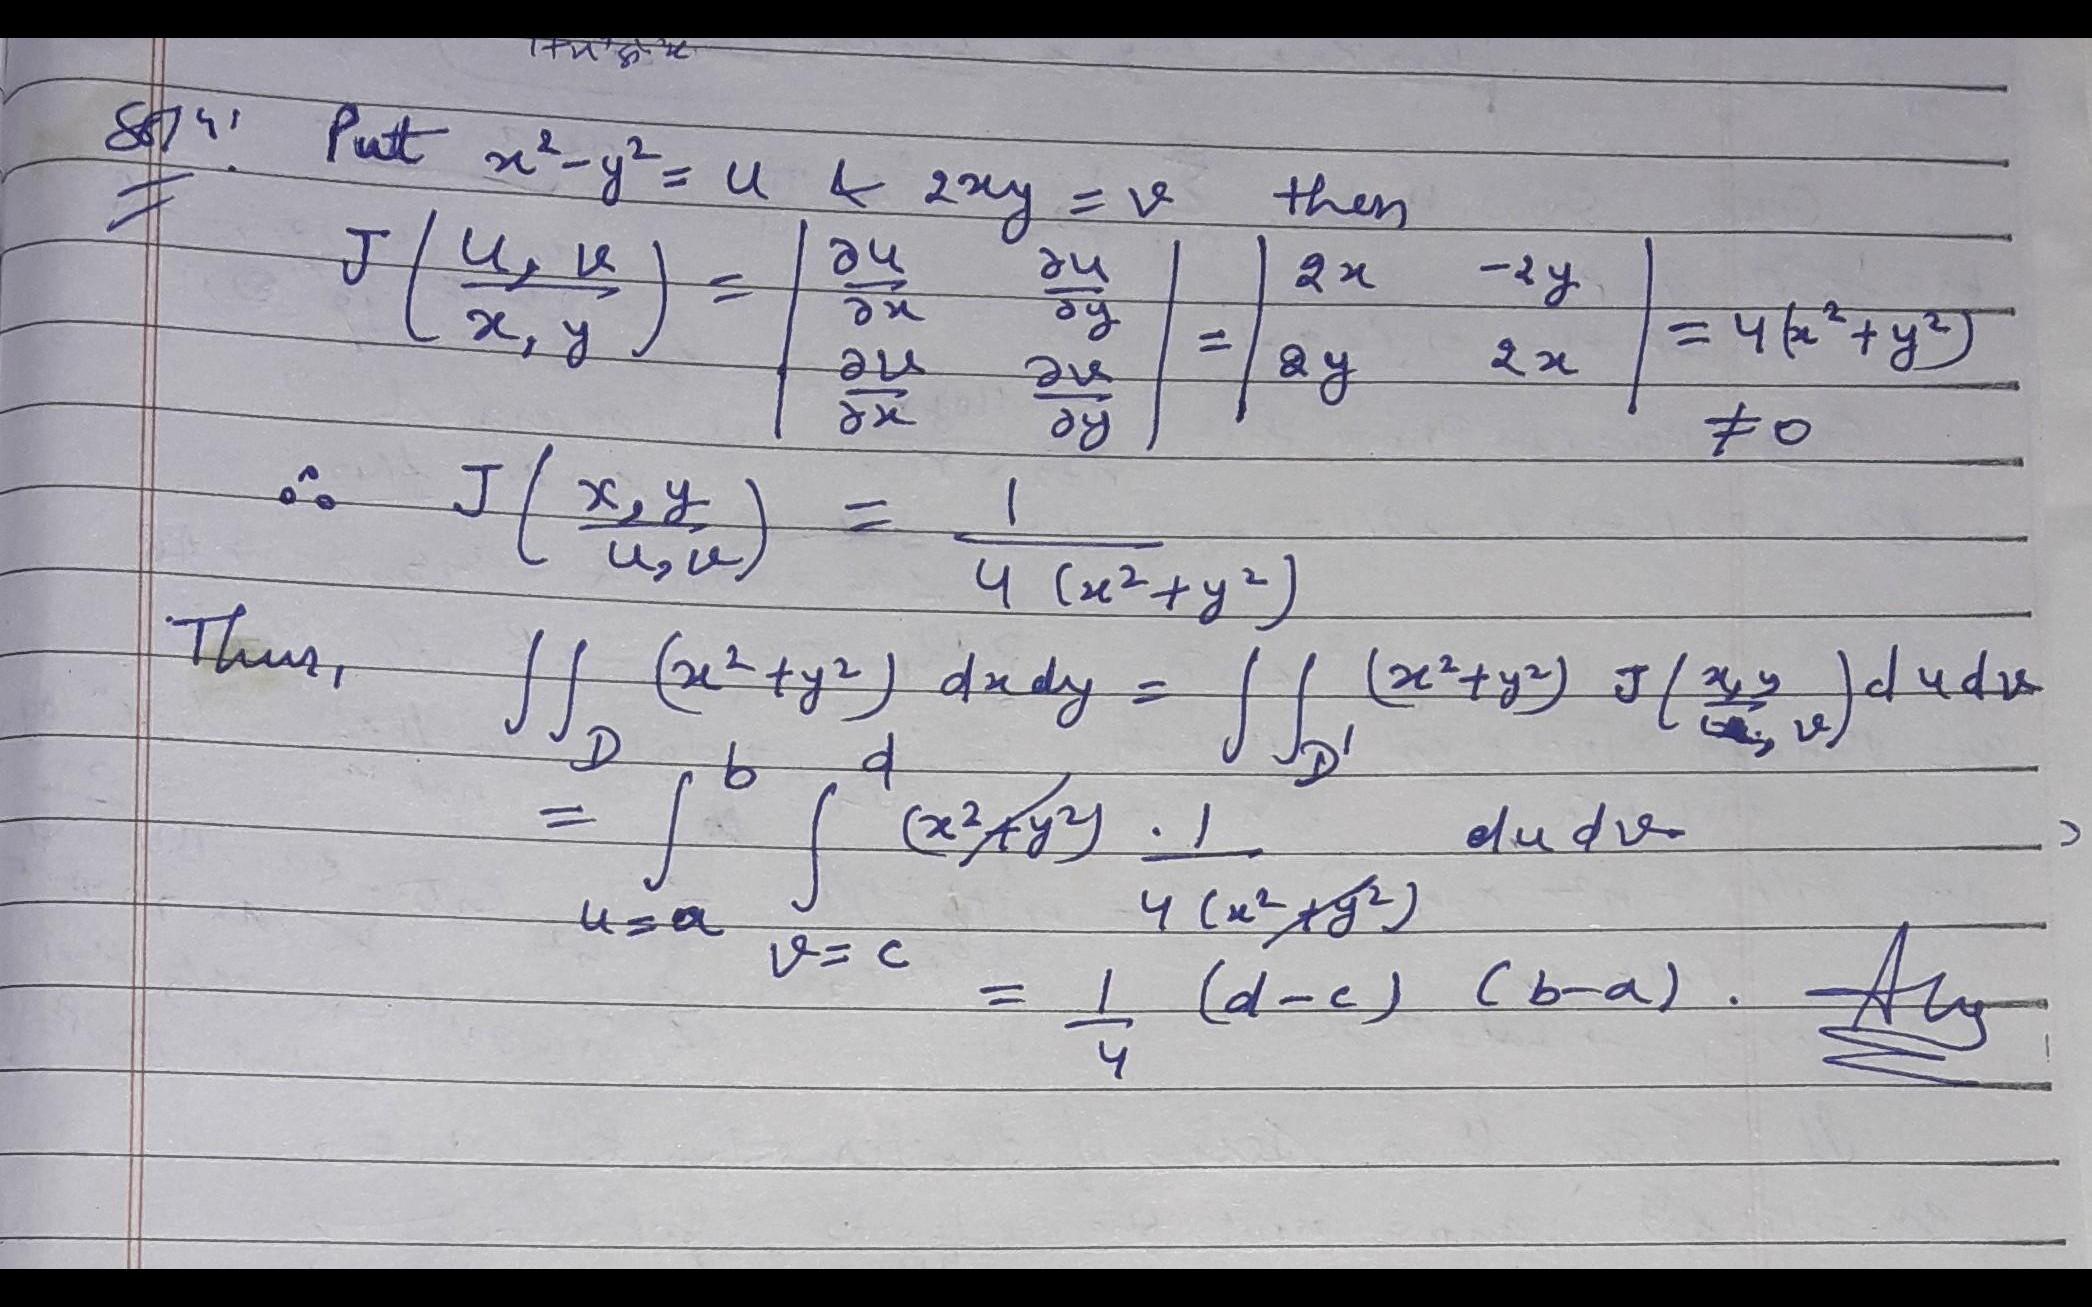 Solⁿ 4: Putt x² - y² = u & 2xy = v then
J(u, v / x, y) = | ∂u/∂x ∂u/∂y ; ∂v/∂x ∂v/∂y | = | 2x -2y ; 2y 2x | = 4(x² + y²)
≠ 0
∴ J(x, y / u, v) = 1 / 4 (x² + y²)
Thus, ∫∫_D (x² + y²) dx dy = ∫∫_D' (x² + y²) J(x, y / u, v) du dv
= ∫_{u=a}^{b} ∫_{v=c}^{d} (x² + y²) . 1 / 4 (x² + y²) du dv
= 1/4 (d - c) (b - a) .